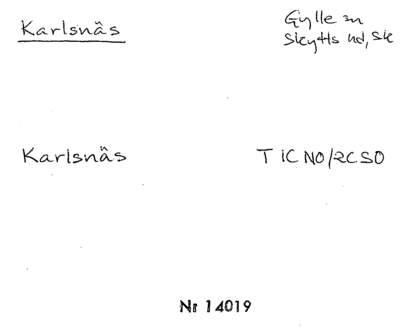 Karlsnäs
Gylle sn
Skytts hd, Sk
Karlsnäs
T 1C NO/2C SO
Nr 14019